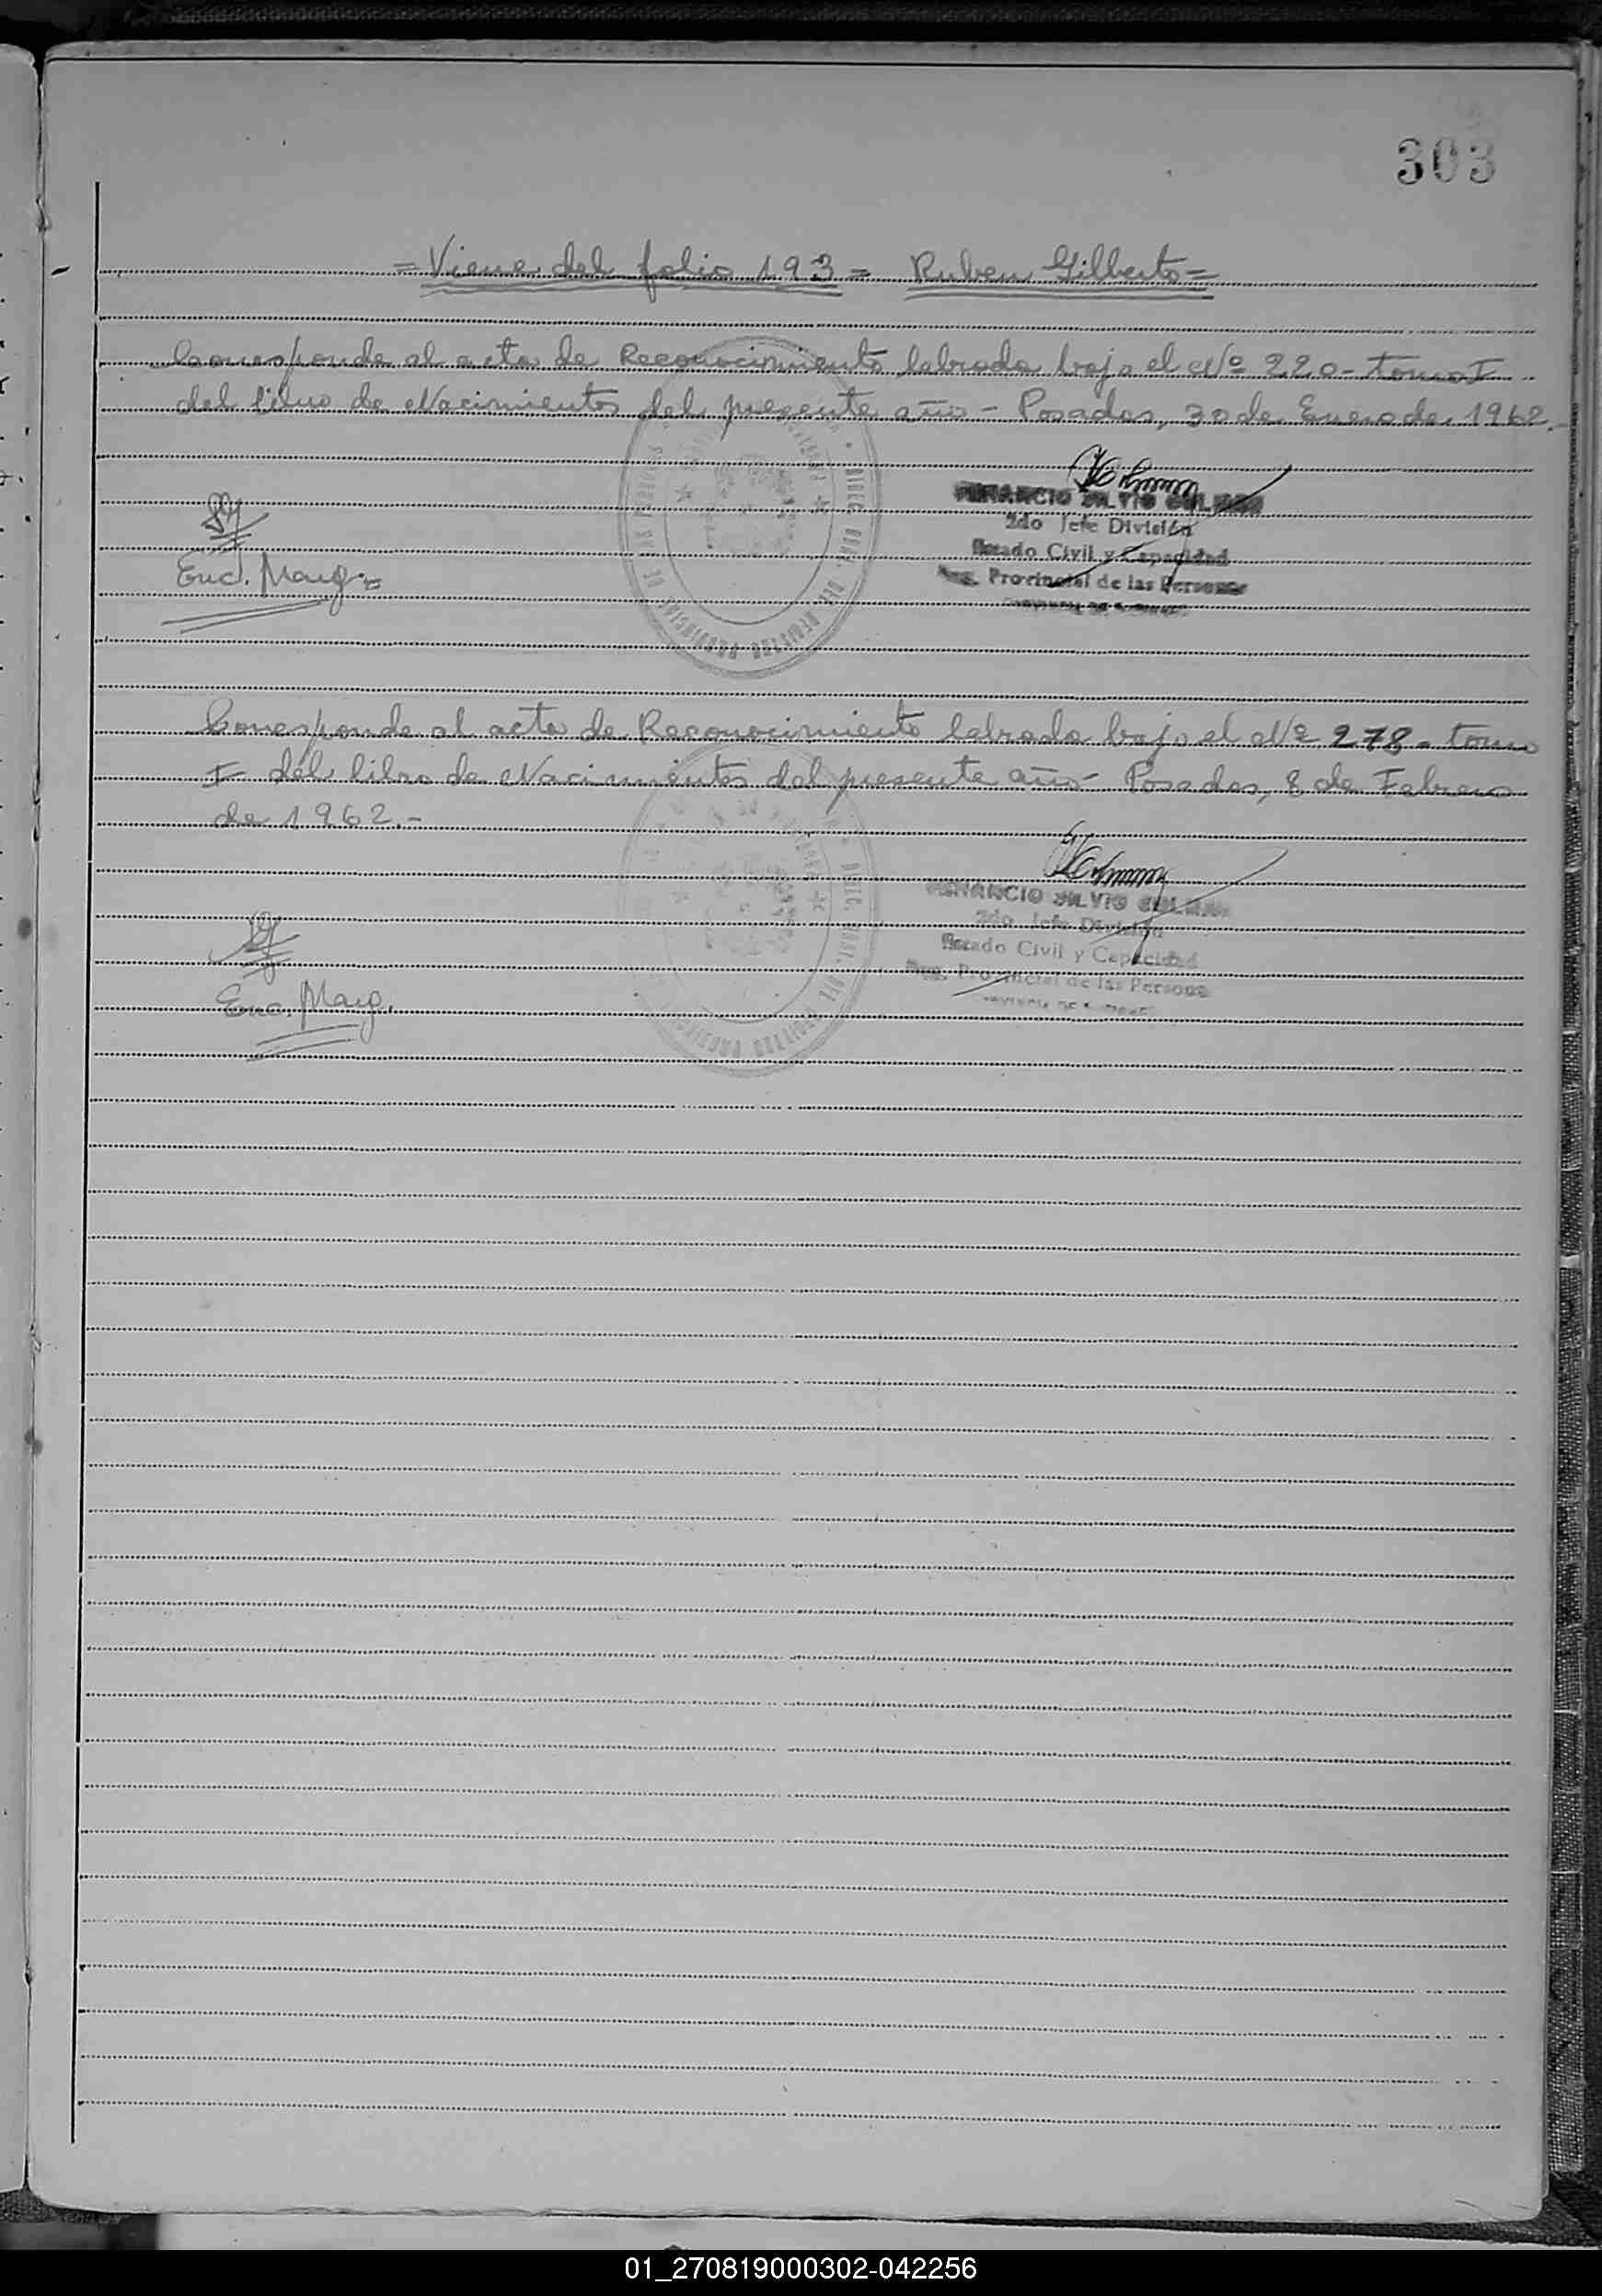 303
= Viene del folio 193 = Ruben Gilberto =
Corresponde al acta de Reconocimiento labrada bajo el Nº 220 - tomo I
del libro de Nacimientos del presente año - Posadas, 30 de Enero de 1962.-
VENANCIO SILVIO
2do Jefe División
Estado Civil y Capacidad
Reg. Provincial de las Personas
Enc. Marg. =
Corresponde al acta de Reconocimiento labrada bajo el Nº 278 - tomo
I - del libro de Nacimientos del presente año - Posadas, 8 de Febrero
de 1962.-
VENANCIO SILVIO
2do Jefe División
Estado Civil y Capacidad
Reg. Provincial de las Personas
Enc. Marg.
01_270819000302-042256